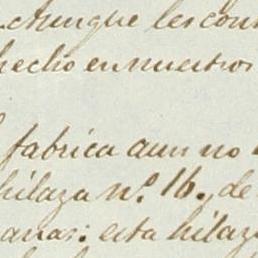 Aunque les con
hecho en nuestros
fabrica aun no
hilaza nº. 16., de
anas: esta hilaz